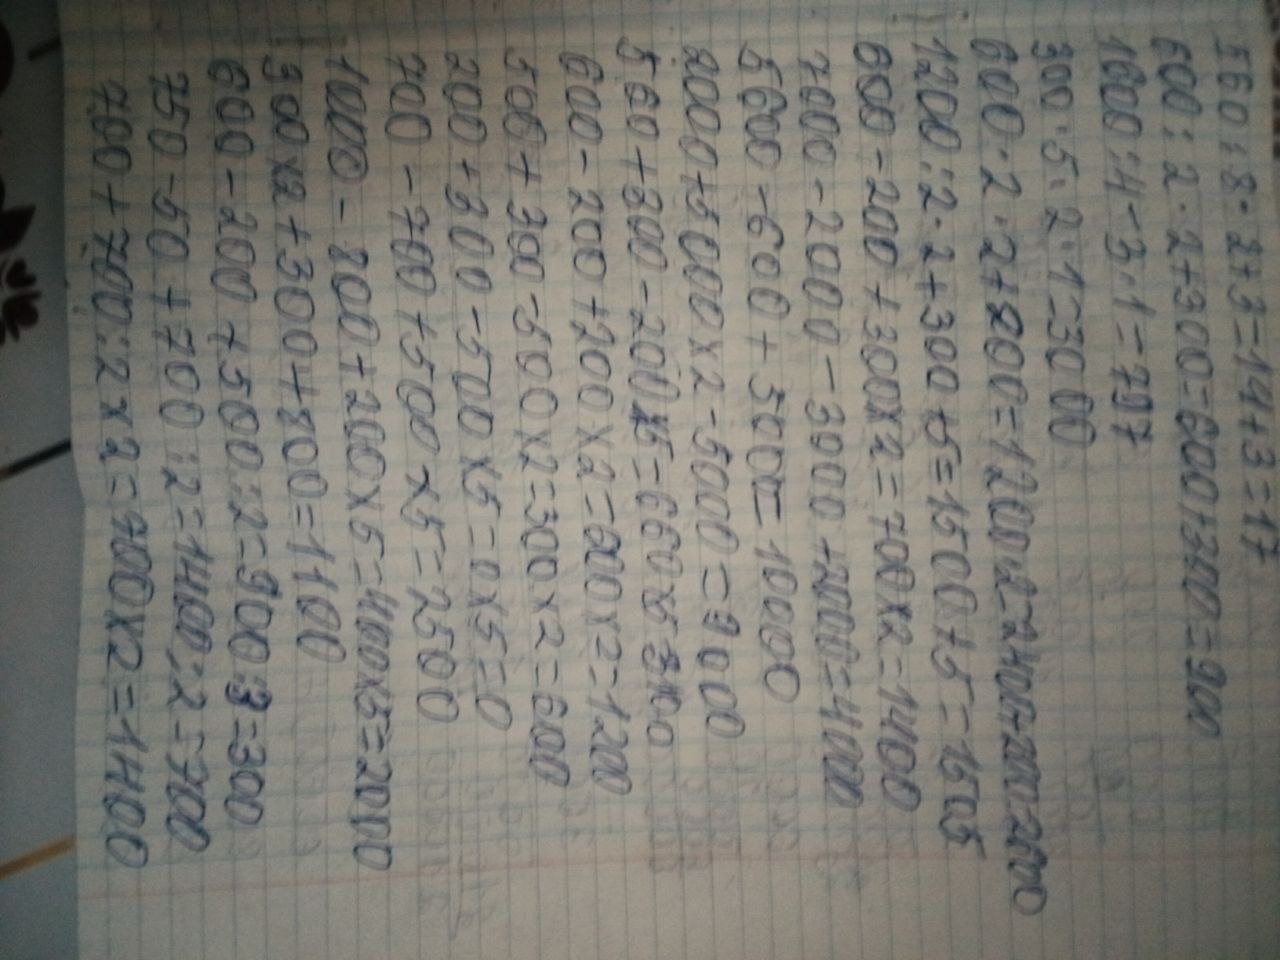 560:8·2+3=14+3=17
600:2·2+300=600+300=900
1600:4-3·1=797
300·5·2·1=3000
600·2·2+200=1200·2=2400+200=2600
1200:2·2+300+5=1500+5=1505
600-200+300x2=700x2=1400
7000-2000-3000+2000=4000
5600-600+5000=10000
2000+5000x2-5000=9000
560+300-200x5=660x5=3300
600-200+200x2=600x2=1200
500+300-500x2=300x2=600
200+300-500x5=0x5=0
700-700+500x5=2500
1000-800+200x5=400x5=2000
300x2+300+200=1100
600-200+500:2=900:3=300
750-50+700:2=1400:2=700
700+700:2x2=700x2=1400